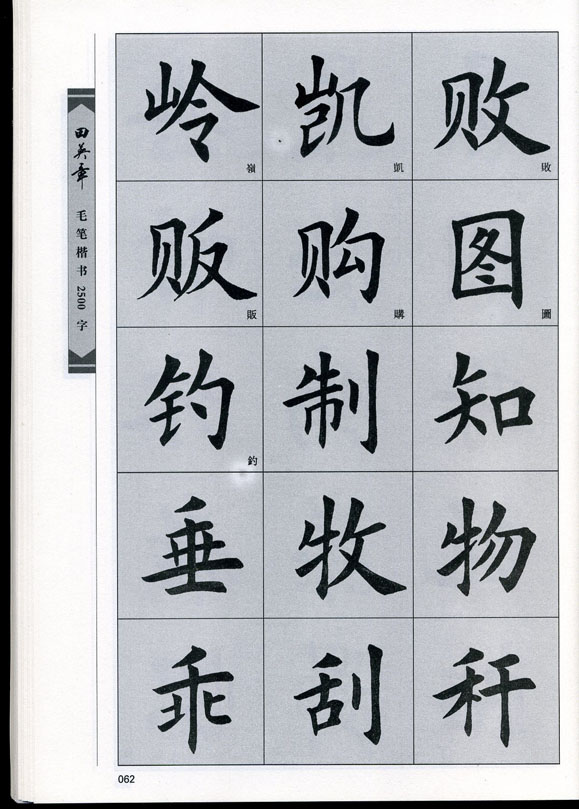 田英章 毛笔楷书 2500 字
岭 凯 败
嶺 凱 敗
贩 购 图
販 購 圖
钓 制 知
釣
垂 牧 物
乖 刮 秆
062